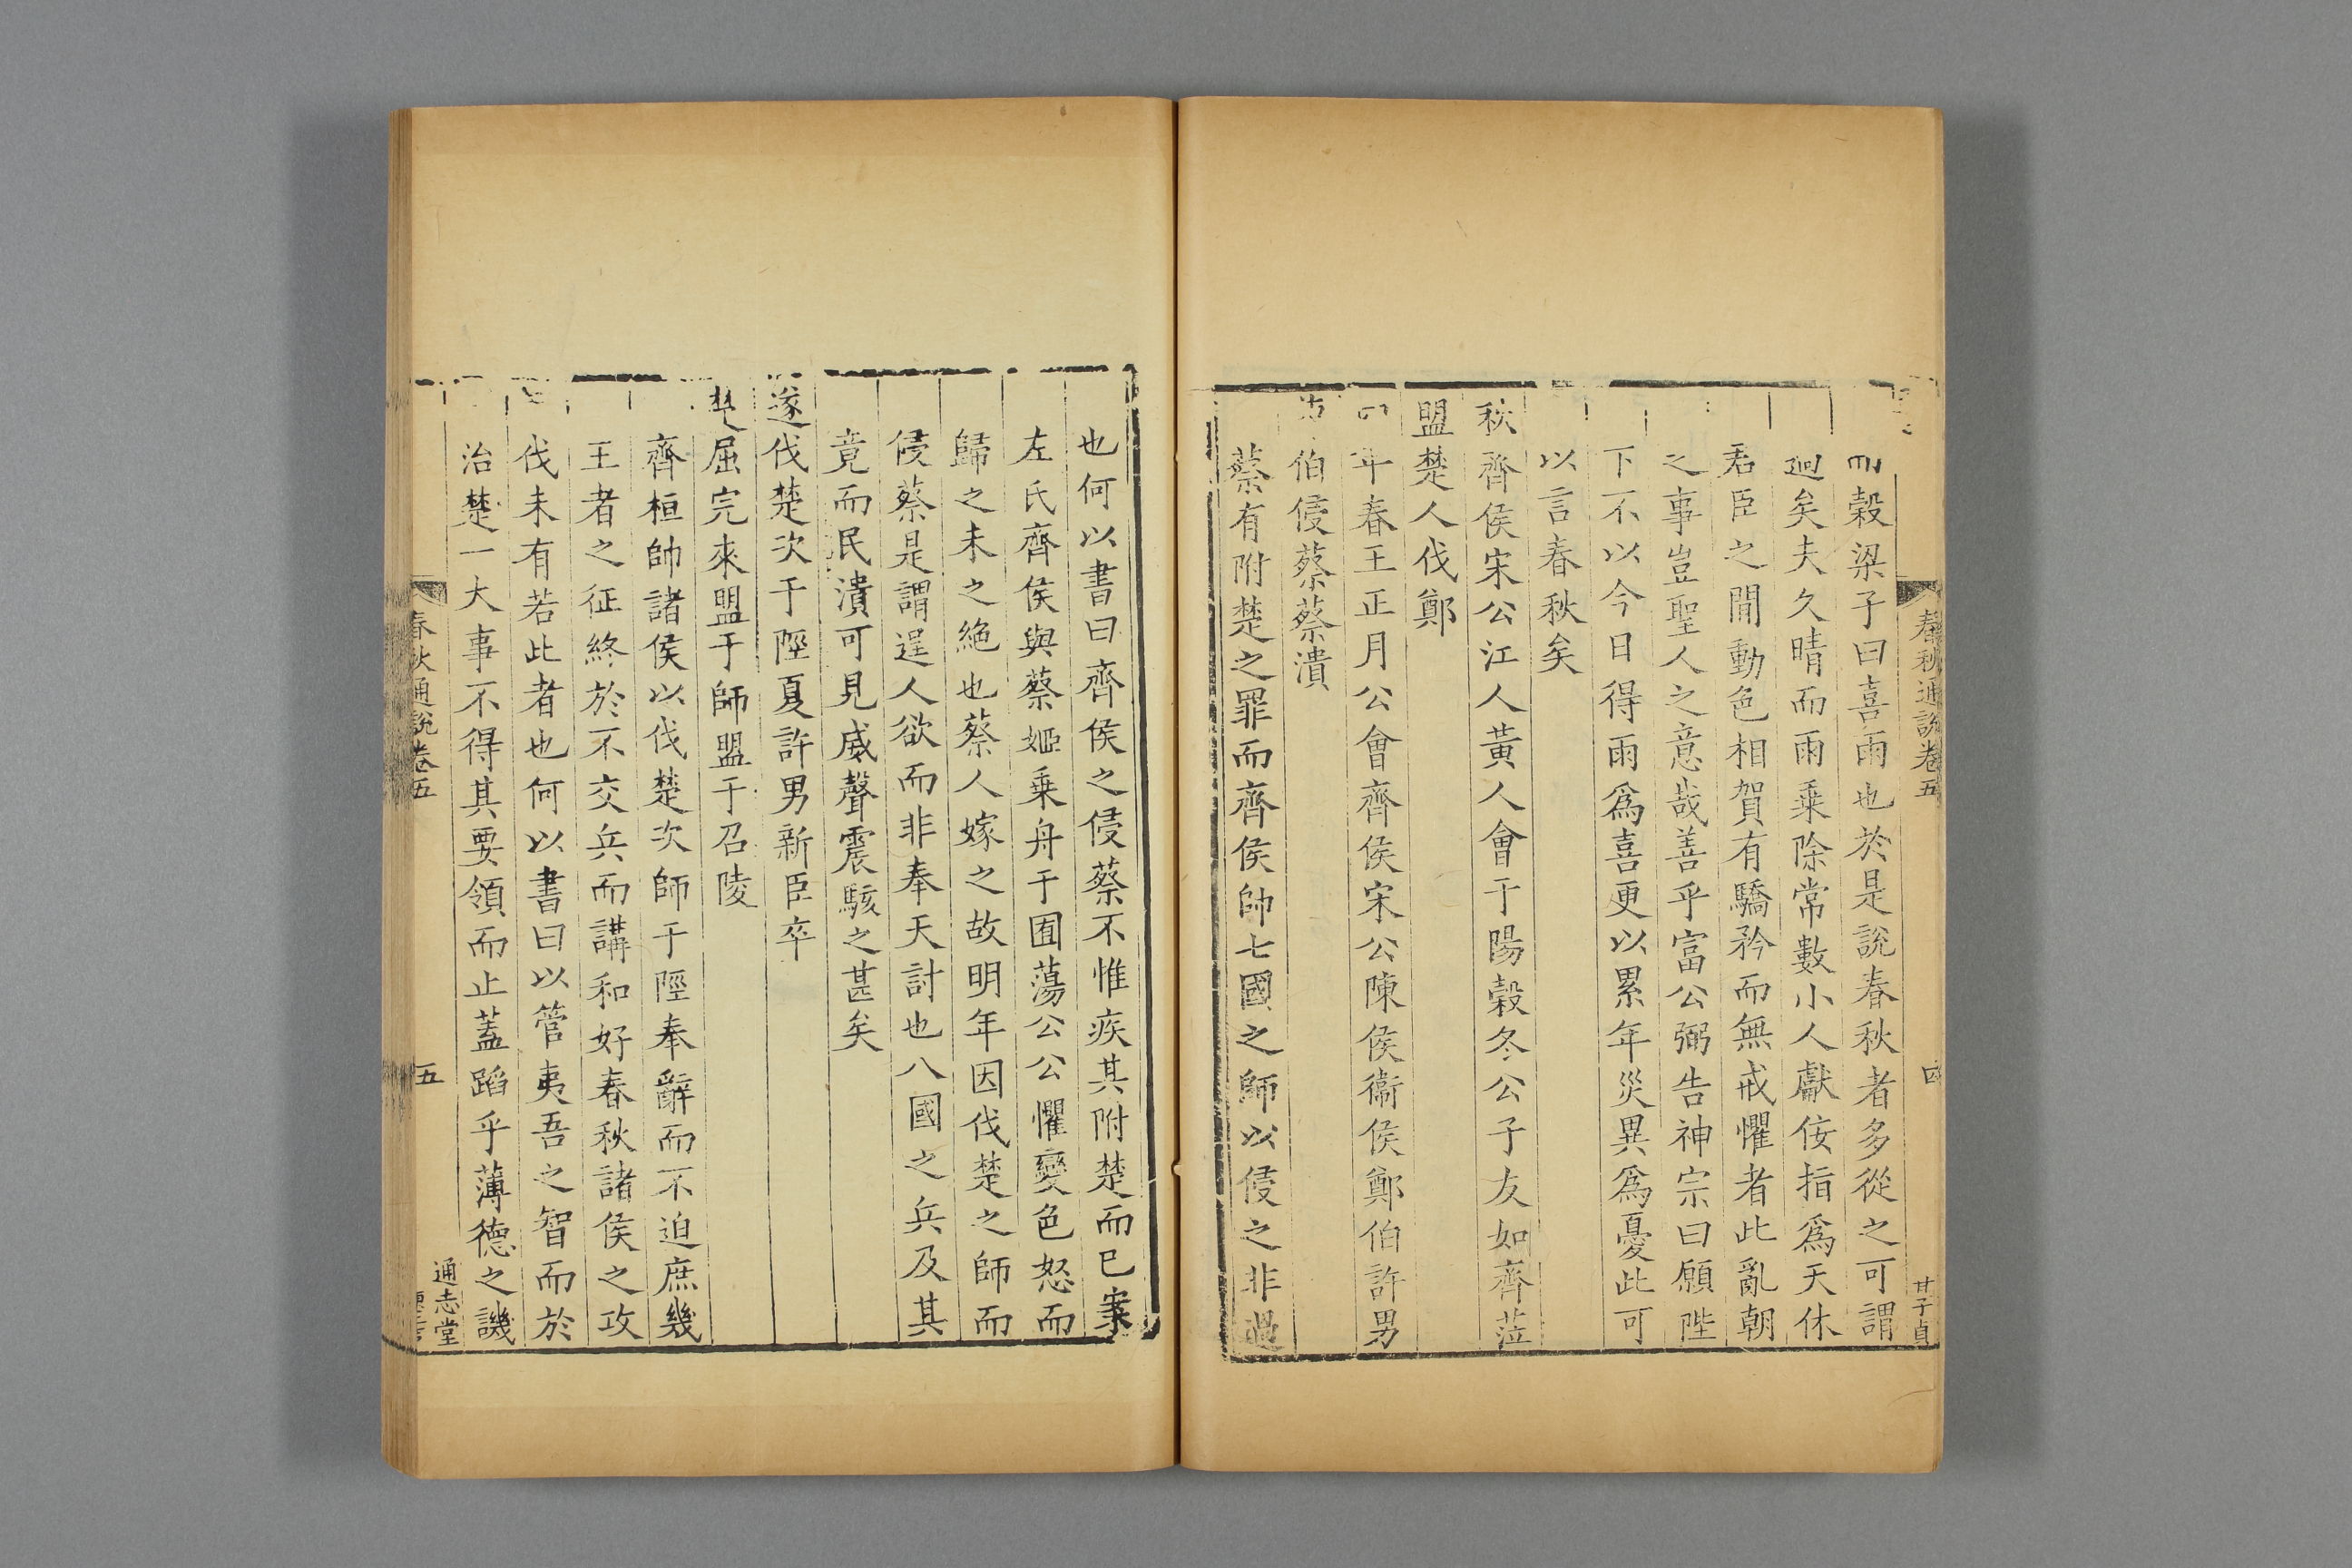 春秋通說卷五
四
甘子貞
而穀梁子曰喜雨也於是說春秋者多從之可謂
迴矣夫久晴而雨乗除常數小人獻佞指爲天休
君臣之閒動色相賀有驕矜而無戒懼者此亂朝
之事豈聖人之意哉善乎富公弼告神宗曰願陛
下不以今日得雨爲喜更以累年災異爲憂此可
以言春秋矣
秋齊侯宋公江人黃人會于陽穀冬公子友如齊蒞
盟楚人伐鄭
年春王正月公會齊侯宋公陳侯衞侯鄭伯許男
伯侵蔡蔡潰
蔡有附楚之罪而齊侯帥七國之師以侵之非過
也何以書曰齊侯之侵蔡不惟疾其附楚而已案
左氏齊侯與蔡姬乗舟于囿蕩公公懼變色怒而
歸之未之絶也蔡人嫁之故明年因伐楚之師而
侵蔡是謂逞人欲而非奉天討也八國之兵及其
竟而民潰可見威聲震駭之甚矣
遂伐楚次于陘夏許男新臣卒
楚屈完來盟于師盟于召陵
齊桓帥諸侯以伐楚次師于陘奉辭而不迫庶幾
王者之征終於不交兵而講和好春秋諸侯之攻
伐未有若此者也何以書曰以管夷吾之智而於
治楚一大事不得其要領而止蓋蹈乎薄德之譏
春秋通說卷五
五
通志堂